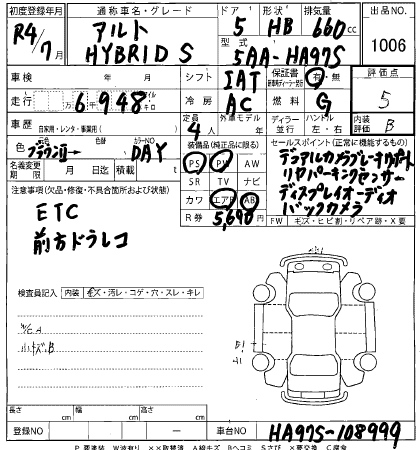 初度登録年月 通称車名・グレード ドア 形状 排気量 出品NO.
R4/7 アルト HYBRID S 5 HB 660cc 1006
型式 5AA-HA97S
車検 年 月 シフト IAT 保証書 有・無 評価点 5
走行 6,948 冷房 AC 燃料 G 内装 B
車歴 自家用・レンタ・事業用( ) 定員 4人 外車モデル 年 ディーラー 並行 ハンドル 左・右
色 ブラウンII 色替 カラーNO DAY
装備品(純正品に限る) セールスポイント(正常に機能するもの)
名義変更期限 月 日迄 積載 PS PW AW
SR TV ナビ
カワ エアB AB
R券 5,690
デュアルカメラブレーキサポート
リヤパーキングセンサー
ディスプレイオーディオ
バックカメラ
注意事項(欠品・修復・不具合箇所および状態)
ETC
前方ドラレコ
FW キズ・ヒビ割・リペア跡・X要
検査員記入 内装 キズ・汚レ・コゲ・穴・スレ・キレ
長さ cm 幅 cm 高さ cm
登録NO 車台NO HA97S-108999
P要塗装 W波有り ××取替済 A線キズ Bヘコミ Sさび ×要交換 C腐食